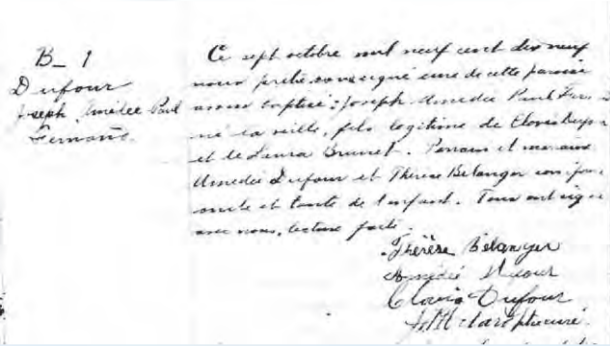 B_ 1
Dufour
Joseph Amédée Paul
Fernand.
Ce sept octobre mil neuf cent dix neuf
nous prêtre soussigné curé de cette paroisse
avons baptisé: Joseph Amédée Paul
né la veille, fils légitime de Clovis Dufour
et de Laura Brunet. Parrain et marraine
Amédée Dufour et Thérèse Belanger conjoints
oncle et tante de l'enfant. Tous ont signé
avec nous, lecture faite.
Thérèse Bélanger
Amédée Dufour
Clovis Dufour
ptre curé.